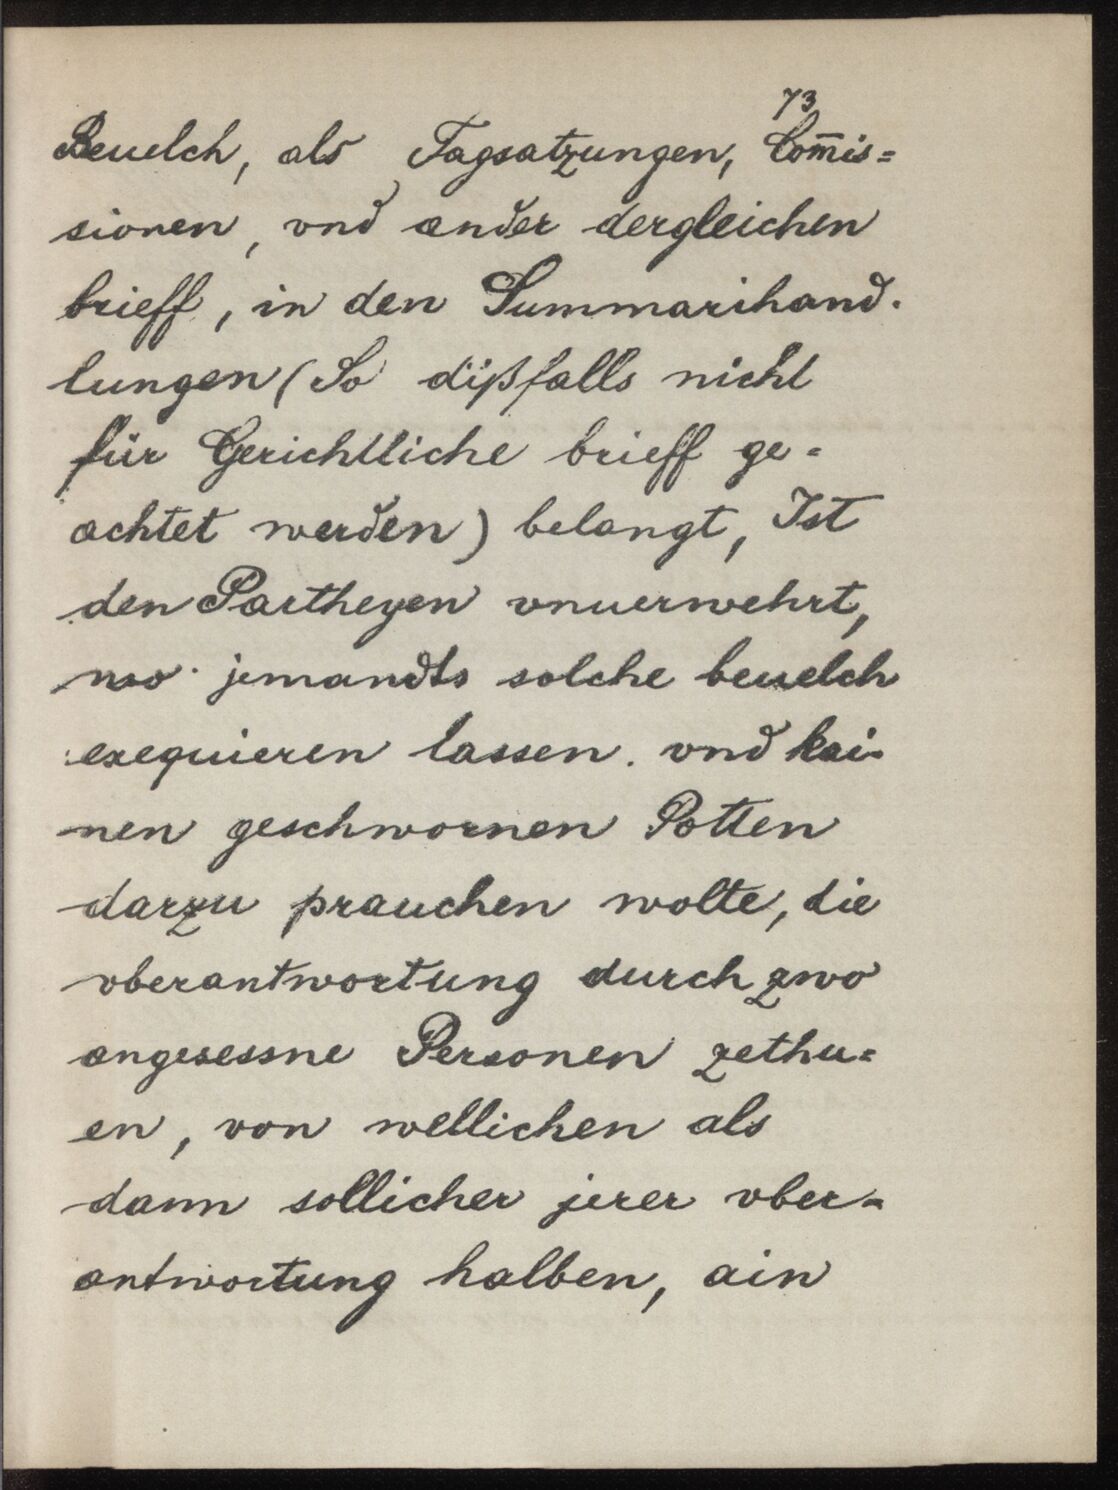 73
Beuelch, als Tagsatzungen, Com̄is=
sionen, vnd ander dergleichen
brieff, in den Summarihand-
lungen (So dißfalls nicht
für Gerichtliche brieff ge-
achtet werden) belangt, Ist
den Partheyen vnuerwehrt,
wo jemandts solche beuelch
exequieren lassen. vnd kai-
nen geschwornen Potten
darzu prauchen wolte, die
vberantwortung durch zwo
angesessne Personen zethu=
en, von wellichen als
dann sollicher jerer vber=
antwortung halben, ain